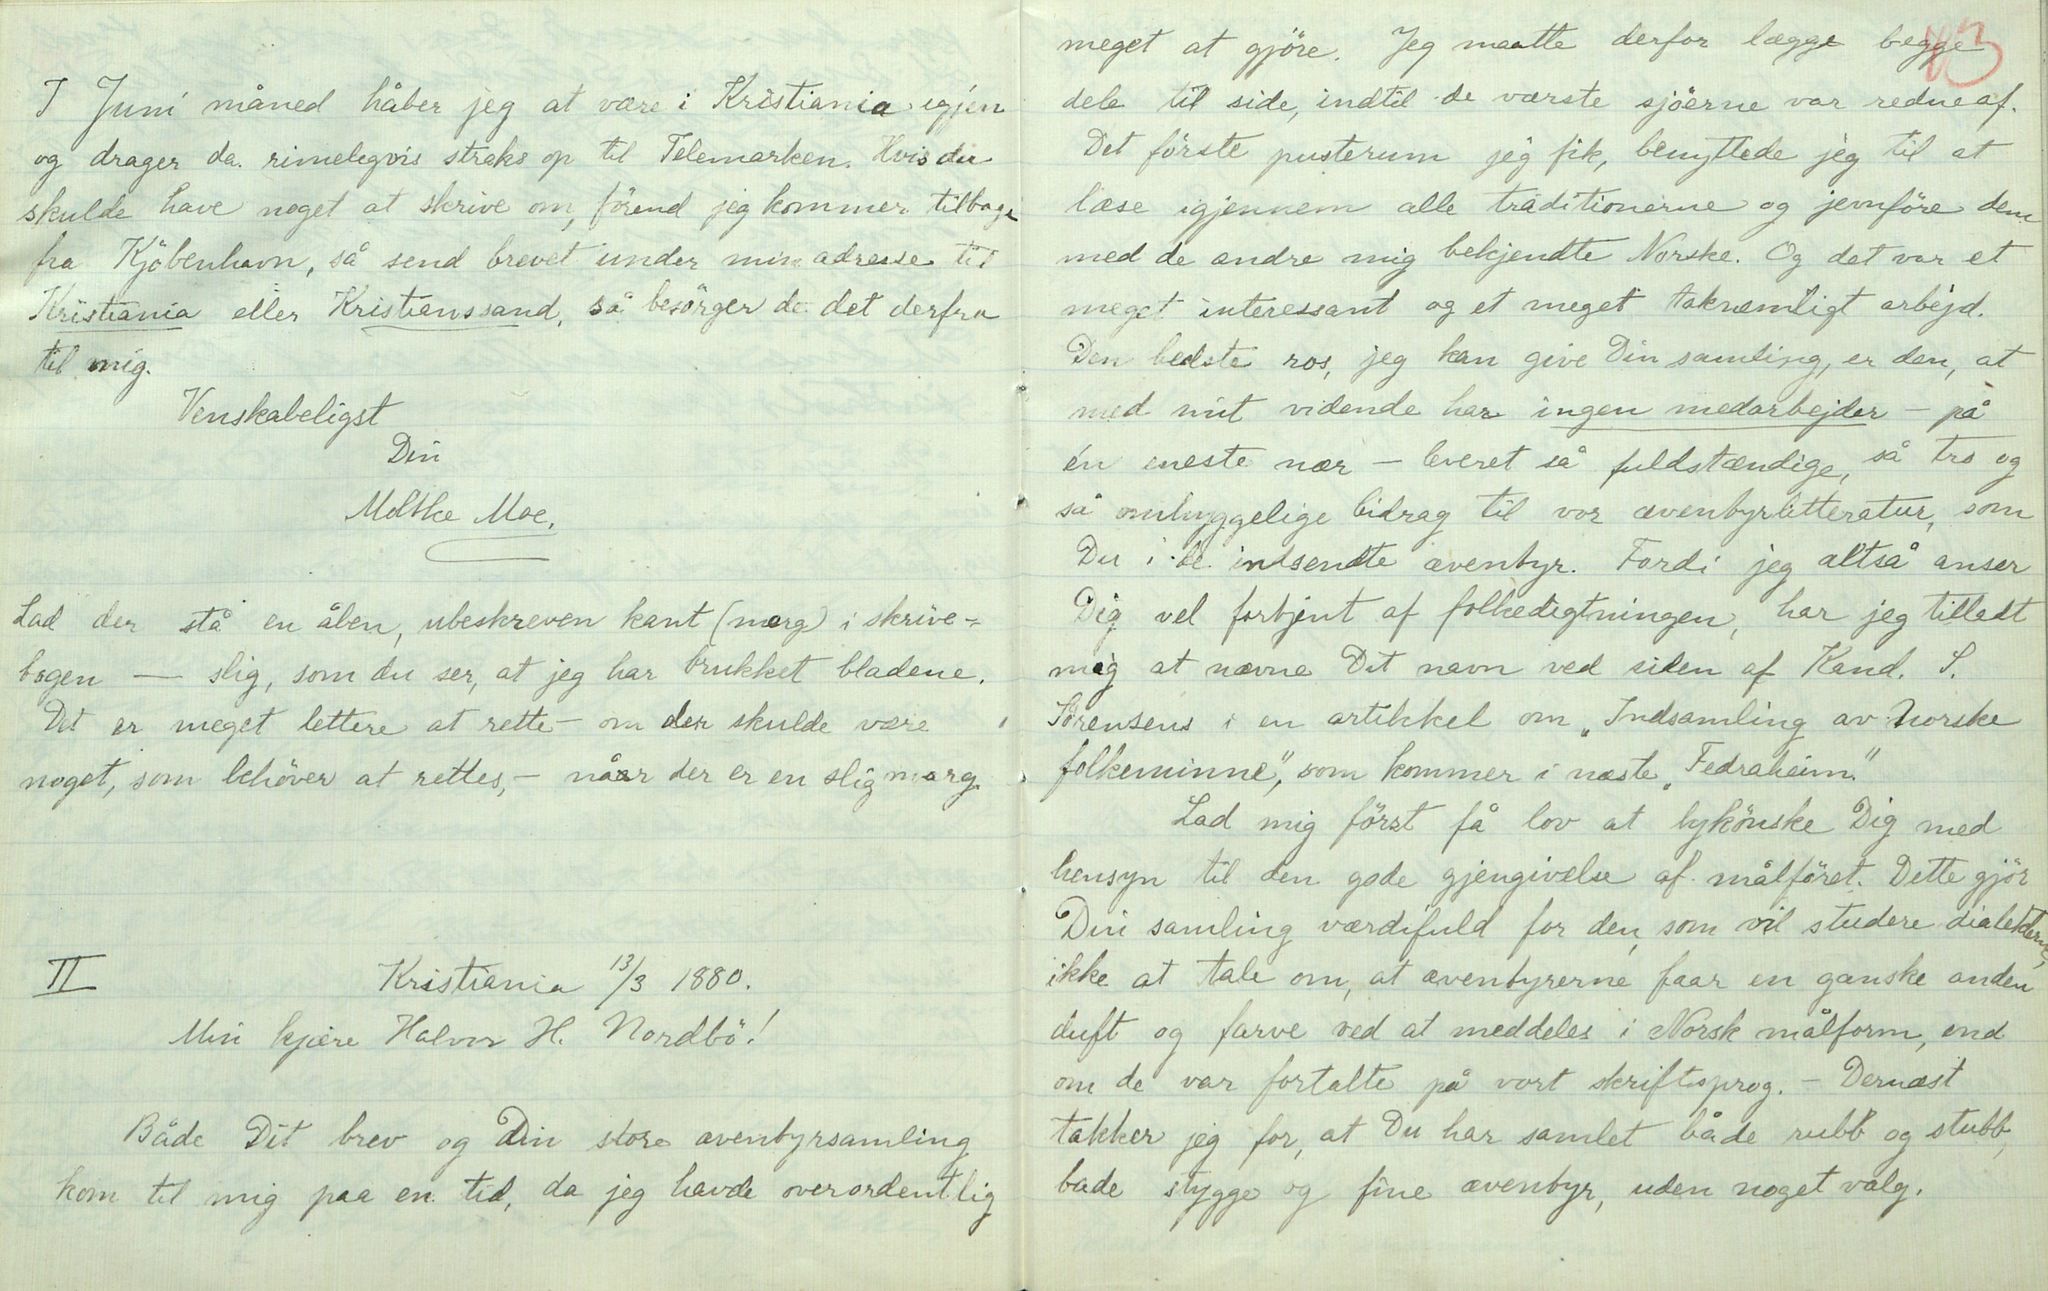 I Juni måned håber jeg at være i Kristiania igjen
og drager da rimeligvis straks op til Telemarken. Hvis du
skulde have noget at skrive om, förend jeg kommer tilbage
fra Kjöbenhavn, så send brevet under min adresse til
Kristiania eller Kristianssand, så besörger de det derfra
til mig.
Venskabeligst
Din
Moltke Moe.
Lad der stå en åben, ubeskreven kant (marg) i skrive-
bogen — slig, som du ser, at jeg har brukket bladene.
Det er meget lettere at rette – om der skulde være
noget, som behöver at rettes, – når der er en slig marg.
II Kristiania 13/3 1880.
Min kjære Halvor H. Nordbö!
Både Dit brev og Din store æventyrsamling
kom til mig paa en tid, da jeg havde overordentlig
83
meget at gjöre. Jeg maatte derfor lægge begge
dele til side, indtil de værste sjöerne var redne af.
Det förste pusterum jeg fik, benyttede jeg til at
læse igjennem alle traditionerne og jevnföre dem
med de andre mig bekjendte Norske. Og det var et
meget interessant og et meget taknemligt arbejd.
Den bedste ros, jeg kan give Din samling, er den, at
med mit vidende har ingen medarbejder – på
én eneste nær – leveret så fuldstændige, så tro og
så omhyggelige bidrag til vor æventyrlitteratur, som
Du i de indsendte æventyr. Fordi jeg altså anser
Dig vel fortjent af folkedigtningen, har jeg tilladt
mig at nævne Dit navn ved siden af Kand. S.
Sörensens i en artikkel om „Indsamling av norske
folkeminne", som kommer i næste „Fedraheim."
Lad mig först få lov at lykönske Dig med
hensyn til den gode gjengivelse af målföret. Dette gjör
Din samling værdifuld for den, som vil studere dialekterne,
ikke at tale om, at æventyrerne faar en ganske anden
duft og farve ved at meddeles i Norsk målform, end
om de var fortalte på vort skriftsprog. – Dernæst
takker jeg for, at Du har samlet både rubb og stubb,
bade stygge og fine æventyr, uden noget valg.